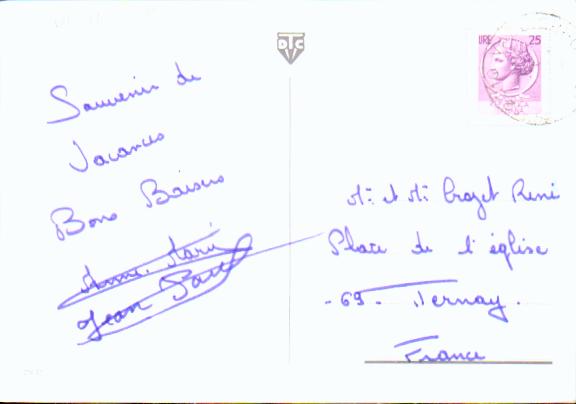 DTC
LIRE 25
Souvenir de
Vacances
Bons Baisers
Anne-Marie
Jean Paul
Mr et Me Crozet René
Place de l'église
- 69 - Ternay.
France